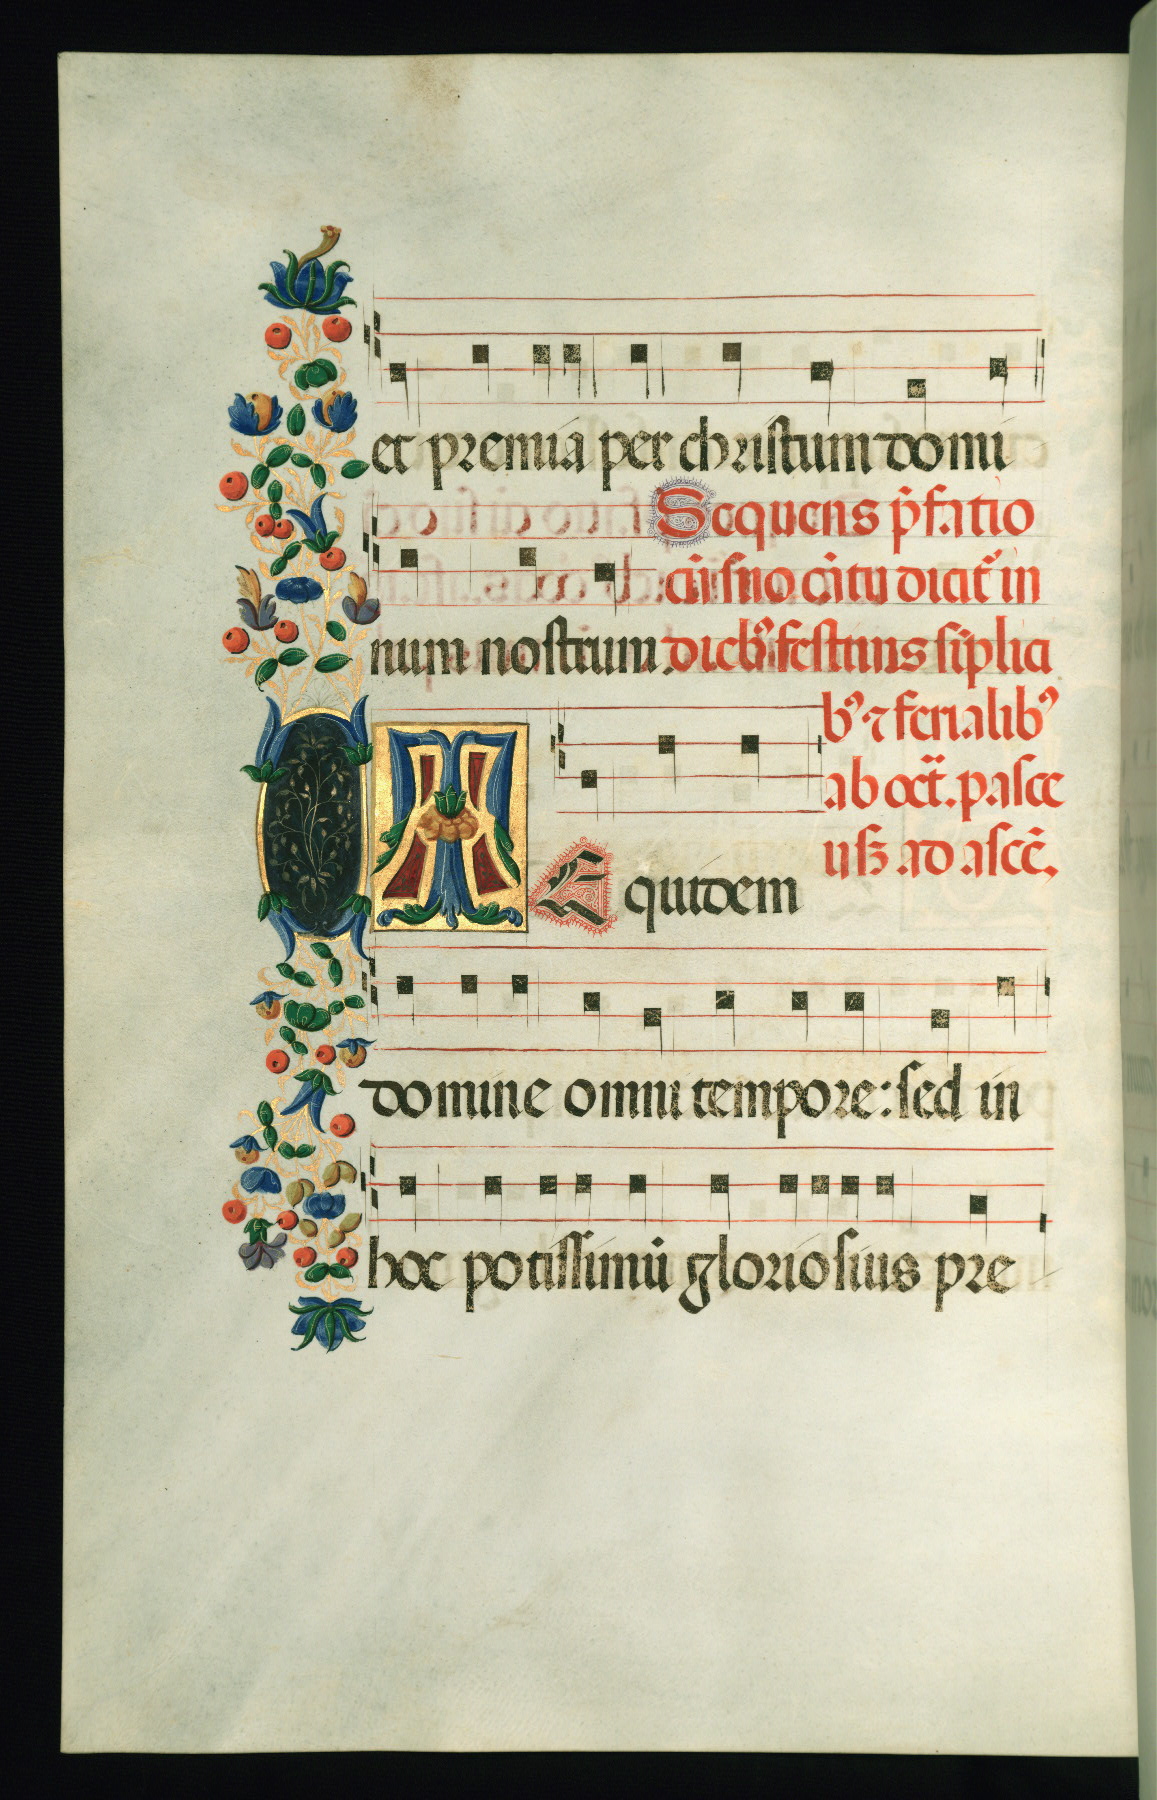 et premia per christum domi
Sequens p̄fatio
cū suo cātu dicit᷑ in
num nostrum. dieb᷒ festiuis sīplici
b᷒ ⁊ ferialib᷒
ab oct̄. pasce
usꝫ ad ascē.
T E quidem
domine omni tempore: sed in
hoc potissimū gloriosius pre